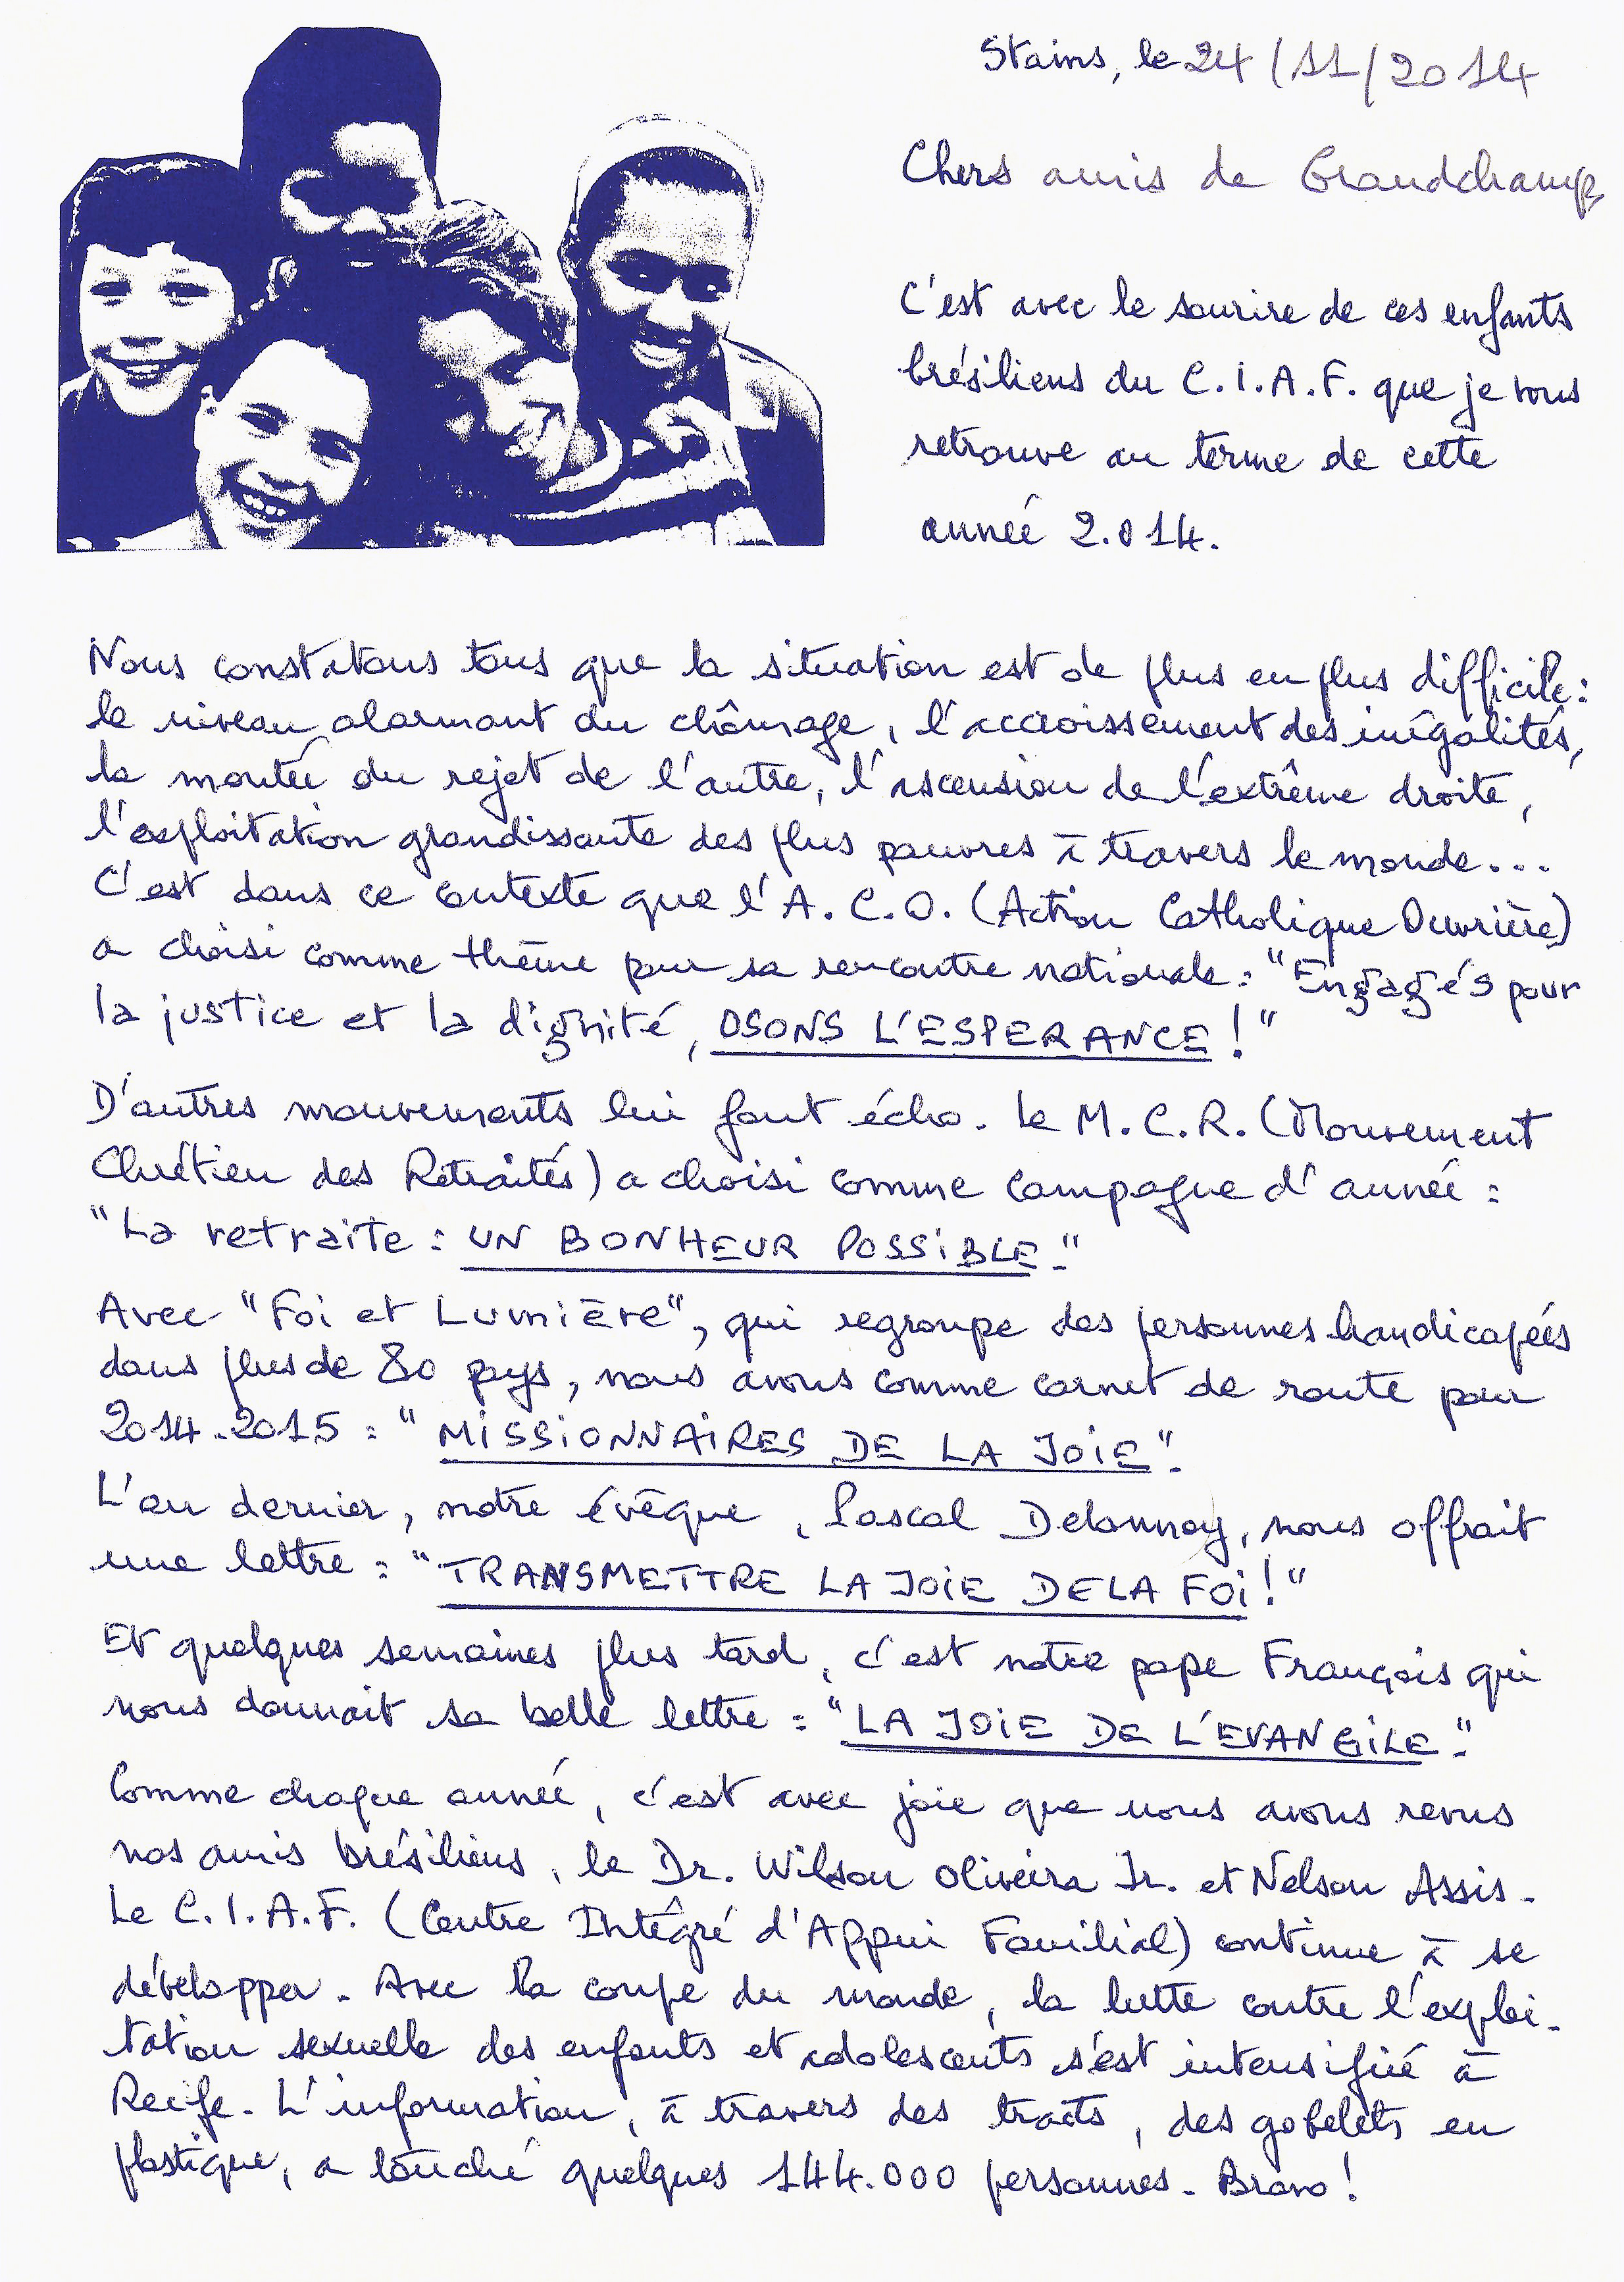 Stains, le 24/11/2014
Chers amis de Grandchamp
C'est avec le sourire de ces enfants
brésiliens du C.I.A.F. que je vous
retrouve au terme de cette
année 2.014.
Nous constatons tous que la situation est de plus en plus difficile :
le niveau alarmant du chômage, l'accroissement des inégalités,
la montée du rejet de l'autre, l'ascension de l'extrême droite,
l'exploitation grandissante des plus pauvres à travers le monde...
C'est dans ce contexte que l'A.C.O. (Action Catholique Ouvrière)
a choisi comme thème pour sa rencontre nationale : "Engagés pour
la justice et la dignité, OSONS L'ESPERANCE !"
D'autres mouvements lui font écho. Le M.C.R. (Mouvement
Chrétien des Retraités) a choisi comme campagne d'année :
"La retraite : UN BONHEUR POSSIBLE".
Avec "Foi et Lumière", qui regroupe des personnes handicapées
dans plus de 80 pays, nous avons comme carnet de route pour
2014-2015 : "MISSIONNAIRES DE LA JOIE".
L'an dernier, notre évêque, Pascal Delannoy, nous offrait
une lettre : "TRANSMETTRE LA JOIE DE LA FOI !"
Et quelques semaines plus tard, c'est notre pape François qui
nous donnait sa belle lettre : "LA JOIE DE L'EVANGILE".
Comme chaque année, c'est avec joie que nous avons revus
nos amis brésiliens, le Dr. Wilson Oliveira Jr. et Nelson Assis.
Le C.I.A.F. (Centre Intégré d'Appui Familial) continue à se
développer. Avec la coupe du monde, la lutte contre l'exploi-
tation sexuelle des enfants et adolescents s'est intensifiée à
Recife. L'information, à travers des tracts, des gobelets en
plastique, a touché quelques 144.000 personnes. Bravo !